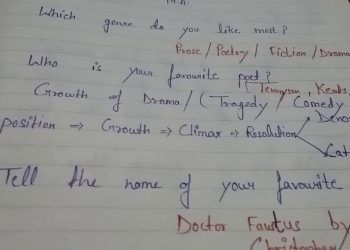 M.A.
Which genre do you like most?
Prose / Poetry / Fiction / Drama
Who is your favourite poet?
Tennyson, Keats,
Growth of Drama / (Tragedy / Comedy
position ⇒ Growth ⇒ Climax ⇒ Resolution
Tell the name of your favourite
Doctor Faustus by